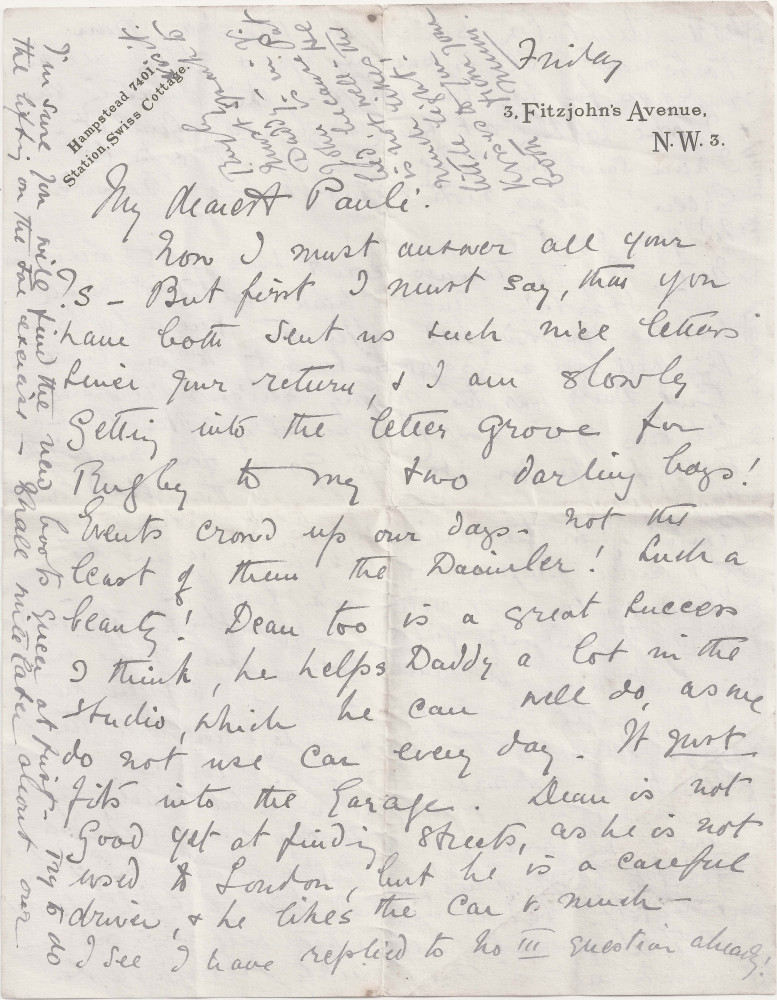 Friday
3, Fitzjohn's Avenue,
N.W. 3.
Hampstead 7401.
Station, Swiss Cottage.
My dearest Pauli.
Now I must answer all your
?s – But first I must say, that you
have both sent us such nice letters
since your return, & I am slowly
getting into the letter grove for
Rugby to my two darling boys!
Events crowd up our days – not the
least of them the Daimler! Such a
beauty! Dean too is a great success
I think, he helps Daddy a lot in the
studio, which he can well do, as we
do not use car every day. It just
fits into the Garage. Dean is not
good yet at finding streets, as he is not
used to London, but he is a careful
driver, & he likes the car v. much –
I see I have replied to No III question already!
I'm sure you will find the new boots queer at first – Try to do
the lifting on the toe exercise – Shall write later about our
visit
to
Rugby
must
Daddy is in
John is not well – He
is not well
little
Kisses to you
both from your
Mum.